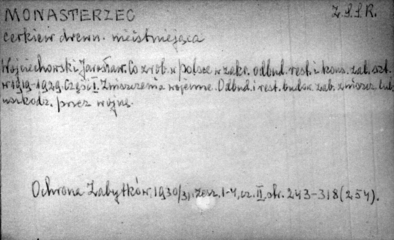 MONASTERZEC Z.S.S.R.
cerkiew drewn. nieistniejąca
Wojciechowski Jarosław. Co zrob. w polsce w zakr. odbud. rest. i kons. zab. szt.
w 1919-1929. Część I. Zniszczenia wojenne. Odbud. i rest. budow. zab. zniszcz. lub
uszkodz. przez wojnę.
Ochrona Zabytków, 1930/31, zesz. 1-4, cz. II, str. 243-318 (254).